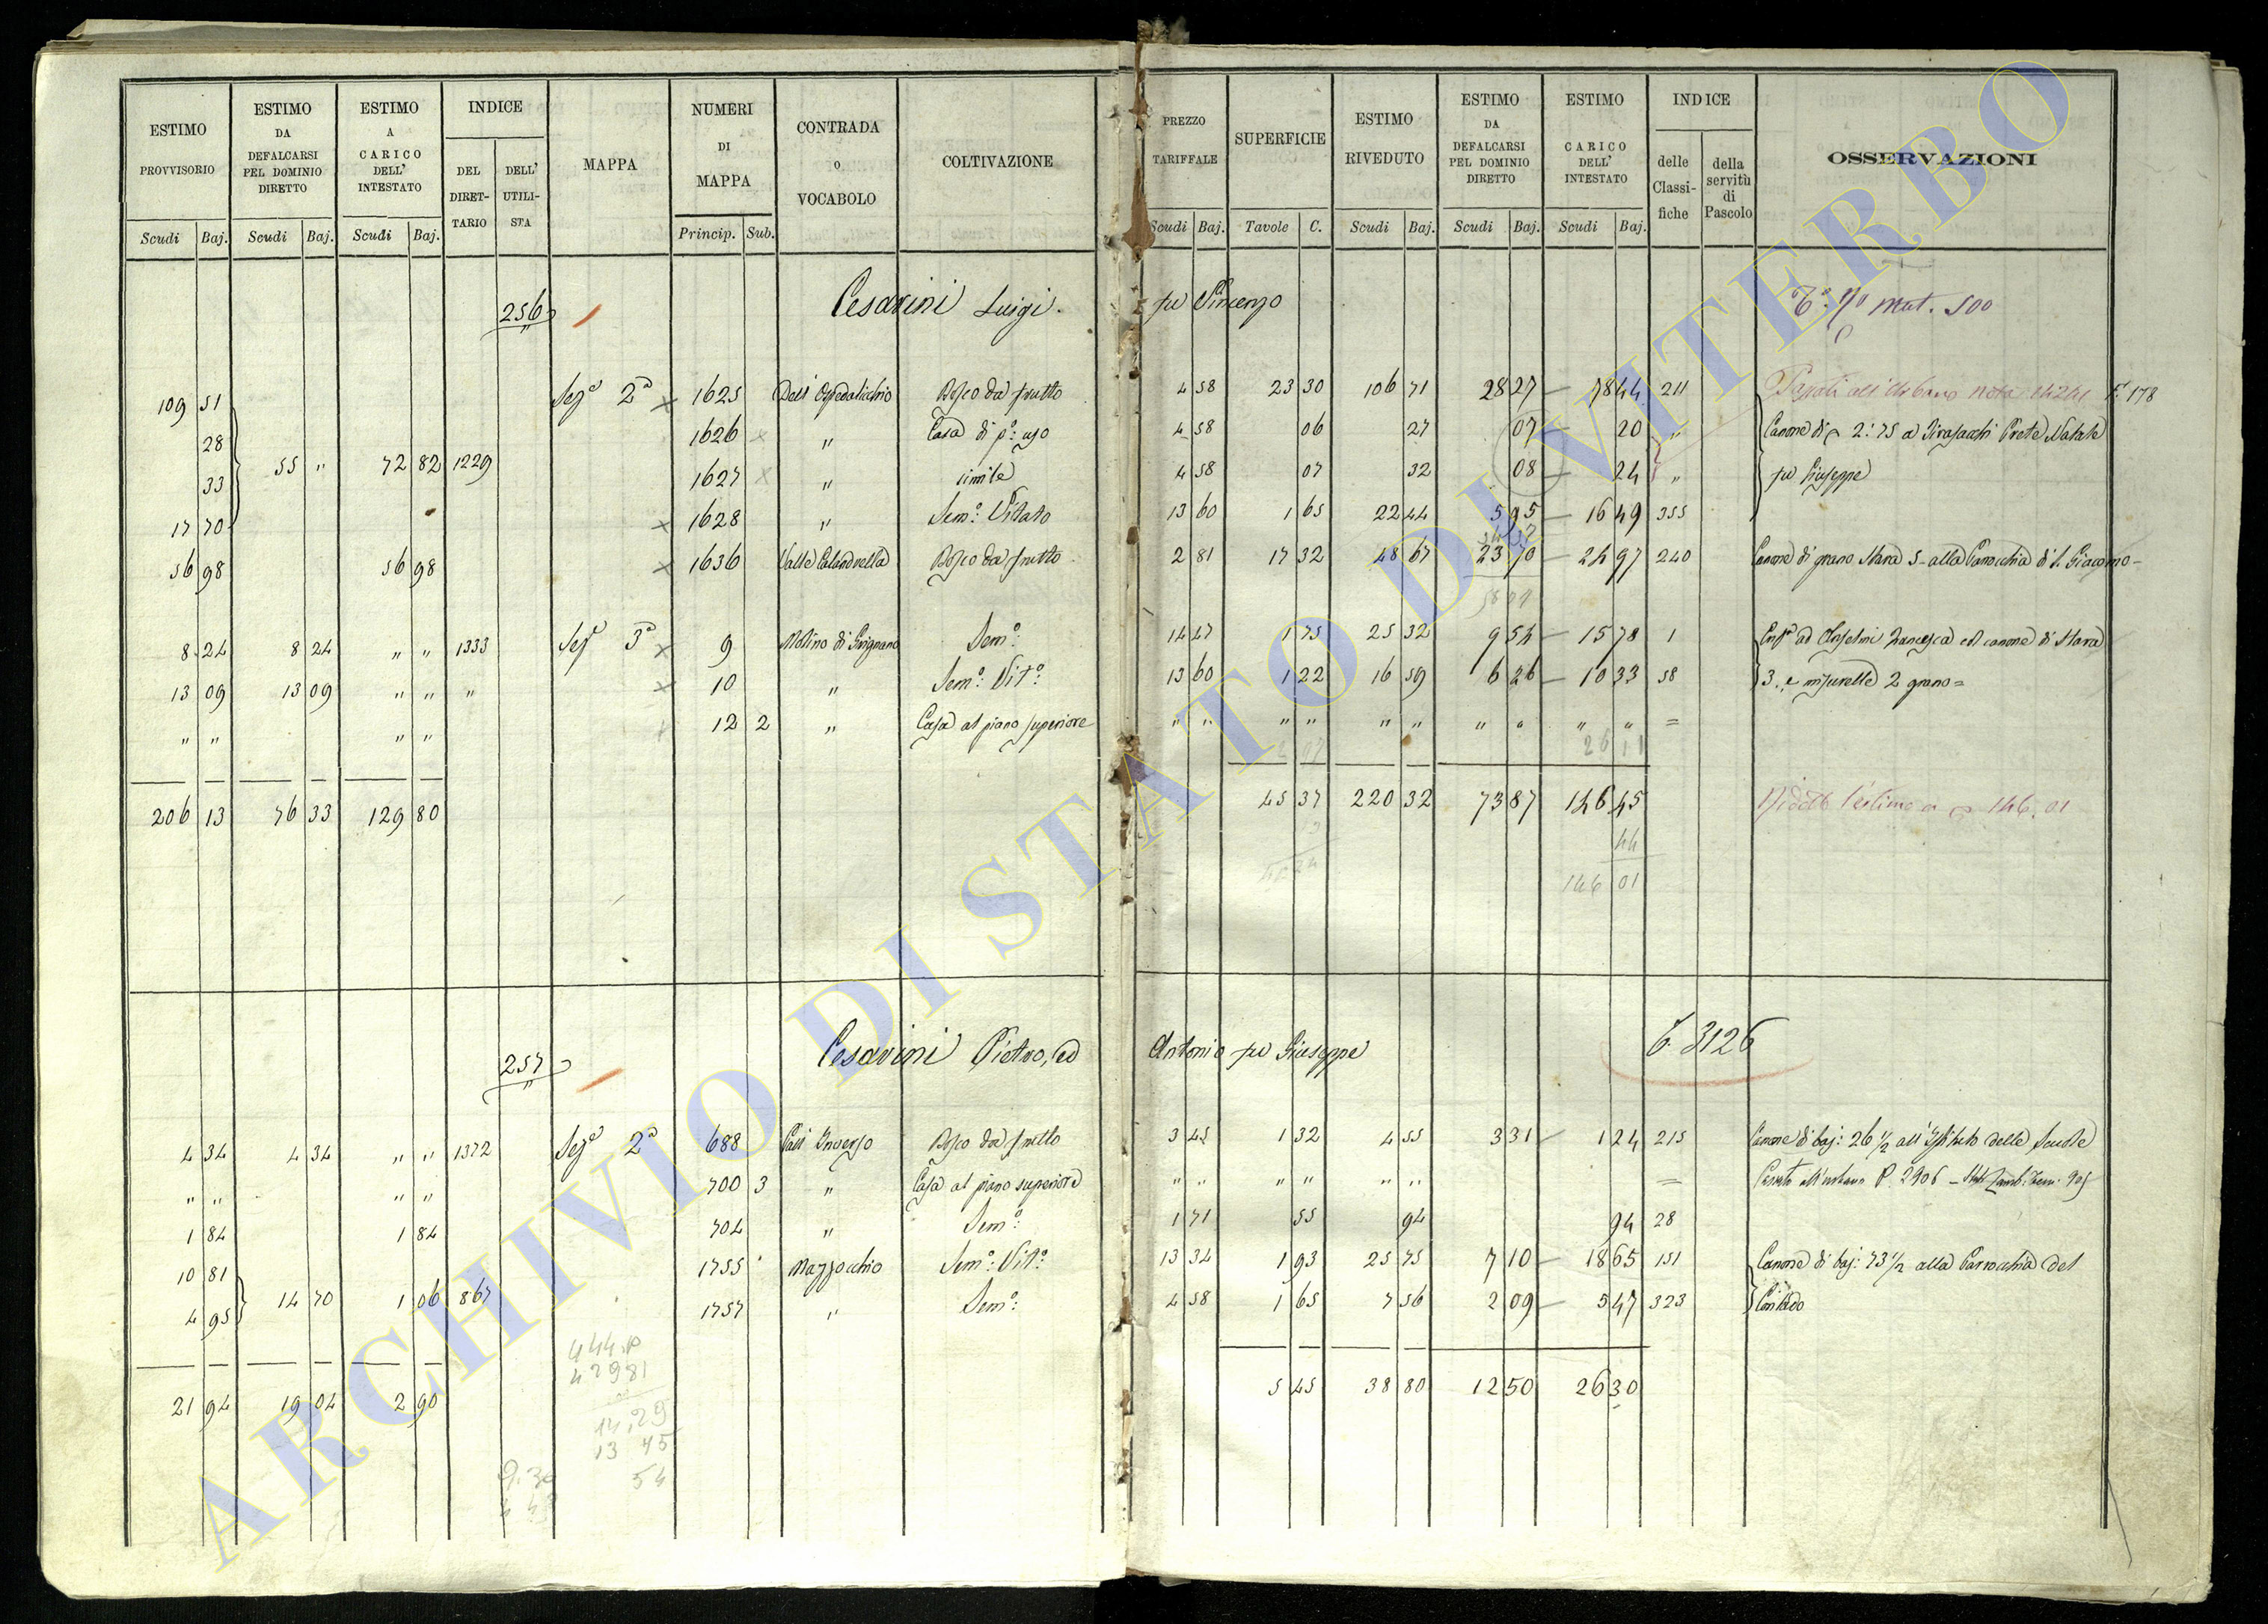 ESTIMO PROVVISORIO | ESTIMO DA DEFALCARSI PEL DOMINIO DIRETTO | ESTIMO A CARICO DELL' INTESTATO | INDICE DEL DIRETTARIO | DELL' UTILISTA | MAPPA | NUMERI DI MAPPA | CONTRADA O VOCABOLO | COLTIVAZIONE | PREZZO TARIFFALE | SUPERFICIE | ESTIMO RIVEDUTO | ESTIMO DA DEFALCARSI PEL DOMINIO DIRETTO | ESTIMO A CARICO DELL' INTESTATO | INDICE delle Classifiche | della servitù di Pascolo | OSSERVAZIONI
Scudi Baj. | Scudi Baj. | Scudi Baj. | Princip. Sub. | Scudi Baj. | Tavole C. | Scudi Baj. | Scudi Baj. | Scudi Baj.
256 Cesarini Luigi fu Vincenzo mut. 500
109 51 | Sez.e 2a | 1625 | Dell' Ospedalicchio | Bosco da frutto | 4 58 | 23 30 | 106 71 | 28 27 | 78 44 | 211 | F. 178
28 | 1626 | " | Casa di p.o uso | 4 58 | 06 | 27 | 07 | 20 | " | Canone di 2:75 a Prete Natale
33 | 55 " | 72 82 | 1229 | 1627 | " | simile | 4 58 | 07 | 32 | 08 | 24 | " | fu Giuseppe
17 70 | 1628 | " | Sem.o Vitato | 13 60 | 1 65 | 22 44 | 5 95 | 16 49 | 355
56 98 | 56 98 | 1636 | Valle Calandrella | Bosco da frutto | 2 81 | 17 32 | 48 67 | 23 70 | 24 97 | 240 | Canone di grano Stara 5 alla Parrocchia di S. Giacomo
8 24 | 8 24 | " " | 1333 | Sez.e 3a | 9 | Molino di Grignano | Sem.o | 14 47 | 1 75 | 25 32 | 9 54 | 15 78 | 1 | ad Anselmi Francesca col canone di Stara
13 09 | 13 09 | " " | " | 10 | " | Sem.o Vit.o | 13 60 | 1 22 | 16 59 | 6 26 | 10 33 | 58 | 3. e misurelle 2 grano =
" " | " " | 12 2 | " | Casa al piano superiore | " " | " " | " " | " " | " " | =
26 11
206 13 | 76 33 | 129 80 | 45 37 | 220 32 | 73 87 | 146 45 | Ridotto l'estimo a 146.01
44
146 01
257 Cesarini Pietro, ed Antonio fu Giuseppe 3126
4 34 | 4 34 | " " | 1372 | Sez.e 2a | 688 | Bosco da frutto | 3 45 | 1 32 | 4 55 | 3 31 | 1 24 | 215 | Canone di baj: 26 1/2 all' Istituto delle Scuole
" " | " " | 700 3 | " | Casa al piano superiore | " " | " " | " " | = | all'urbano P. 2906
1 84 | 1 84 | 704 | " | Sem.o | 1 71 | 55 | 94 | 94 | 28
10 81 | 1755 | Mazzocchio | Sem.o Vit.o | 13 34 | 1 93 | 25 75 | 7 10 | 18 65 | 151 | Canone di baj: 73 1/2 alla Parrocchia del
4 95 | 14 70 | 1 06 | 867 | 1757 | " | Sem.o | 4 58 | 1 65 | 7 56 | 2 09 | 5 47 | 323
21 94 | 19 04 | 2 90 | 5 45 | 38 80 | 12 50 | 26 30
13 45
54
ARCHIVIO DI STATO DI VITERBO